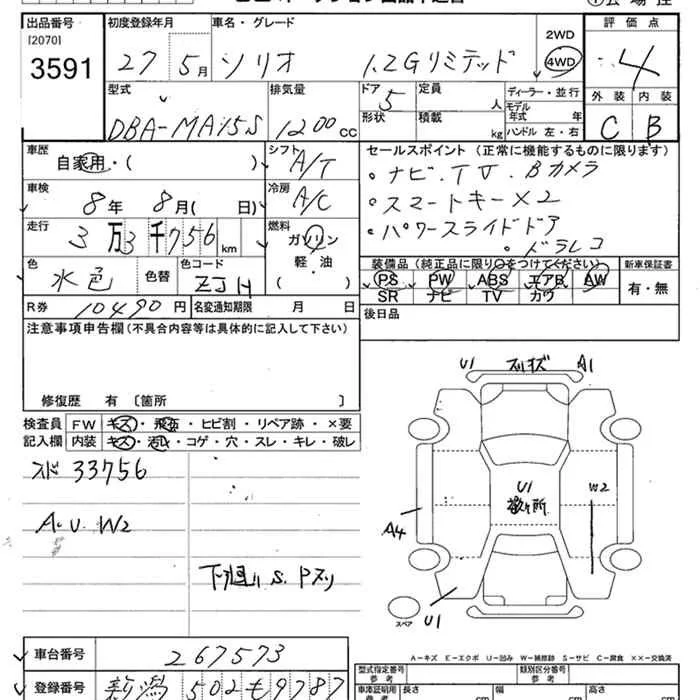 出品番号 初度登録年月 車名・グレード 評価点
[2070] 2WD
3591 27 5月 ソリオ 1.2Gリミテッド 4WD 4
型式 排気量 ドア 定員 ディーラー・並行 外装 内装
5 人 モデル年式 年
DBA-MA15S 1200cc 形状 積載 kg ハンドル 左・右 C B
車歴 シフト セールスポイント(正常に機能するものに限ります)
自家用・( ) A/T ・ナビ.TV.Bカメラ
車検 冷房 ・スマートキー×2
8年 8月( 日) A/C ・パワースライドドア
走行 燃料 ・ドラレコ
3万3千756km ガソリン
軽・油
色 色コード ( ) 装備品(純正品に限り○をつけてください) 新車保証書
水色 色替 ZJH PS PW ABS エアB AW 有・無
SR ナビ TV カワ
R券 10490円 名変通知期限 月 日 後日品
注意事項申告欄(不具合内容等は具体的に記入して下さい)
修復歴 有〔箇所 〕
検査員 FW キズ・飛石・ヒビ割・リペア跡・×要
記入欄 内装 キズ・汚れ・コゲ・穴・スレ・キレ・破レ
U1 スリキズ A1
スド 33756
A.U.W2
下廻り S.Pスリ
U1 W2
A4
U1
スペア
A-キズ E-エクボ U-凹み W-補修跡 S-サビ C-腐食 ××-交換済
車台番号 267573
登録番号 新潟 502 も 9787
型式指定番号 参考 類別区分番号 参考
車庫証明用 参考 長さ cm 幅 cm 高さ cm